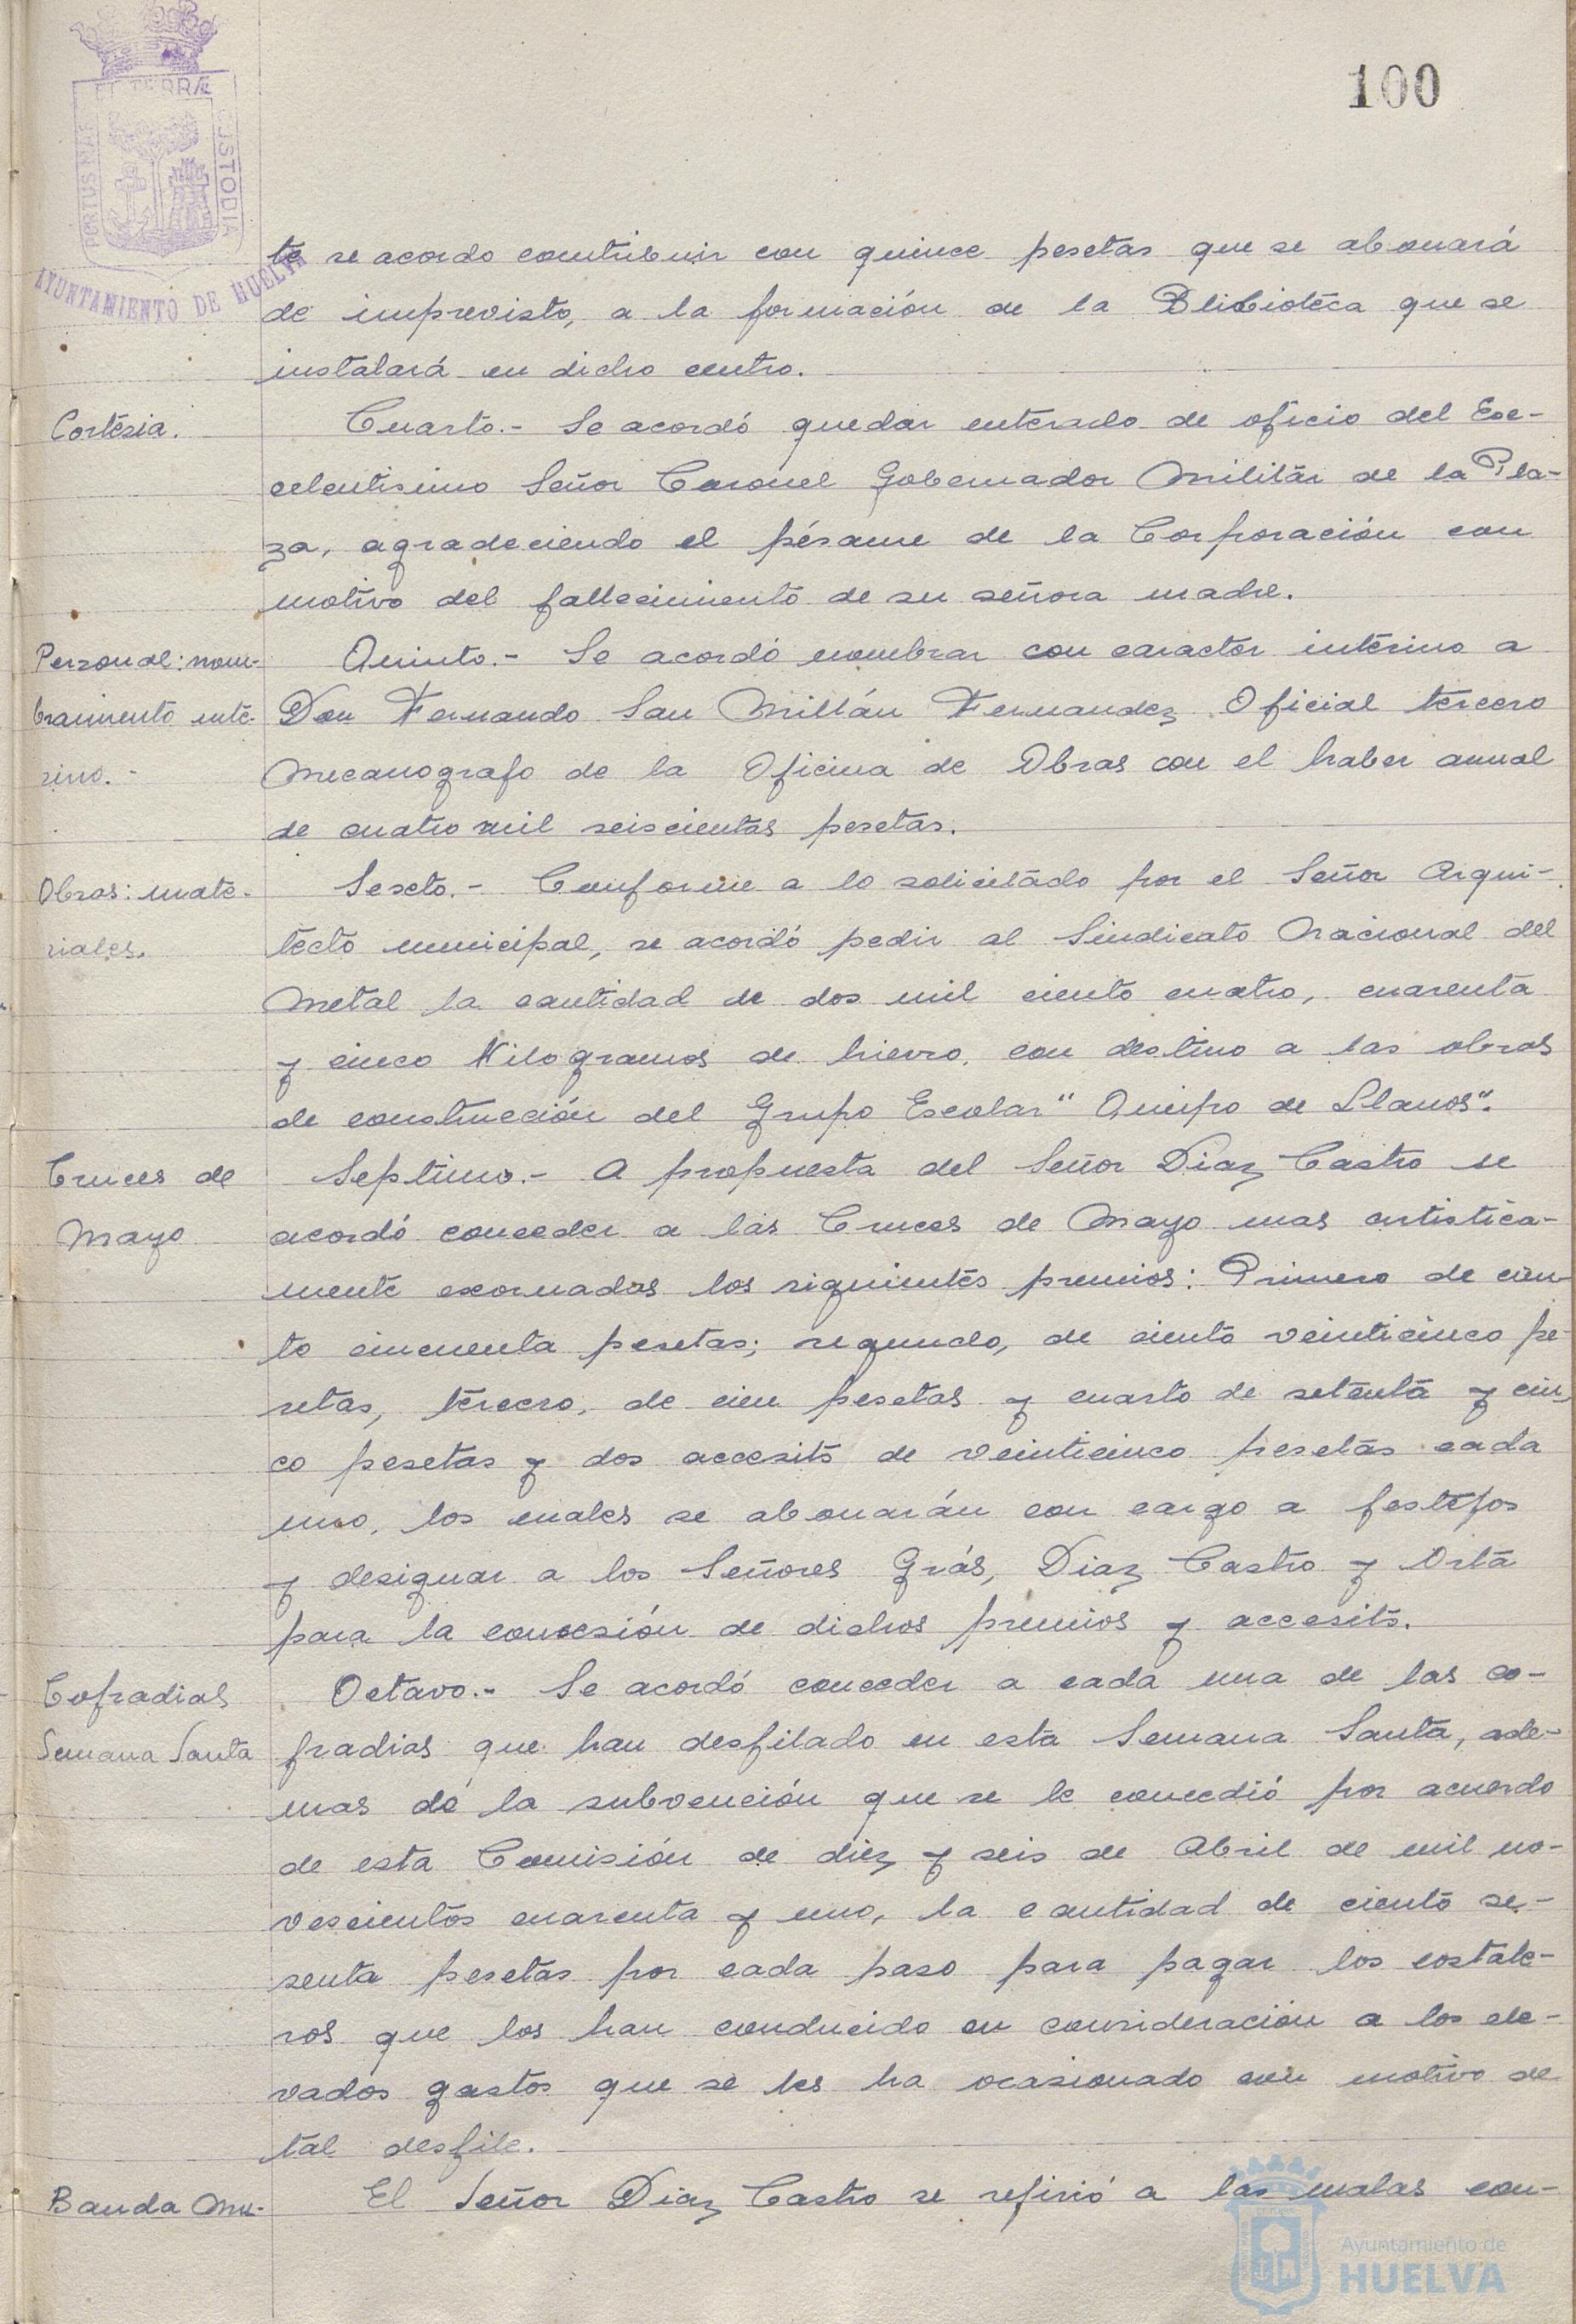 100
PORTUS MARIS ET TERRÆ CUSTODIA
AYUNTAMIENTO DE HUELVA
te se acordo contribuir con quince pesetas que se abonará
de imprevisto, a la formación de la Blibioteca que se
instalará en dicho centro.
Cortesia.
Cuarto.- Se acordó quedar enterado de oficio del Exe-
celentisimo Señor Coronel Gobernador Militar de la Pla-
za, agradeciendo el pésame de la Corporación con
motivo del fallecimiento de su señora madre.
Personal: nom-
bramiento inte-
rino.-
Quinto.- Se acordó nombrar con caracter interino a
Don Fernando San Millán Fernandez Oficial tercero
Mecanografo de la Oficina de Obras con el haber anual
de cuatro mil seiscientas pesetas.
Obras: mate-
riales.
Sexto.- Conforme a lo solicitado por el Señor Arqui-
tecto municipal, se acordó pedir al Sindicato Nacional del
Metal la cantidad de dos mil ciento cuatro, cuarenta
y cinco Kilogramos de hierro, con destino a las obras
de construcción del Grupo Escolar "Queipo de Llanos".
Cruces de
Mayo
Septimo.- A propuesta del Señor Diaz Castro se
acordó conceder a las Cruces de Mayo mas artistica-
mente exornadas los siguientes premios: Primero de cien-
to cincuenta pesetas; segundo, de ciento veinticinco pe-
setas, tercero, de cien pesetas y cuarto de setenta y cin-
co pesetas y dos accesits de veinticinco pesetas cada
uno, los cuales se abonarán con cargo a festejos
y designar a los Señores Grás, Diaz Castro y Orta
para la concesión de dichos premios y accesits.
Cofradias
Semana Santa
Octavo.- Se acordó conceder a cada una de las co-
fradias que han desfilado en esta Semana Santa, ade-
mas de la subvención que se le concedió por acuerdo
de esta Comisión de diez y seis de Abril de mil no-
vescientos cuarenta y uno, la cantidad de ciento se-
senta pesetas por cada paso para pagar los costale-
ros que los han conducido en consideración a los ele-
vados gastos que se les ha ocasionado con motivo de
tal desfile.
Banda Mu-
El Señor Diaz Castro se refirió a las malas con-
Ayuntamiento de
HUELVA